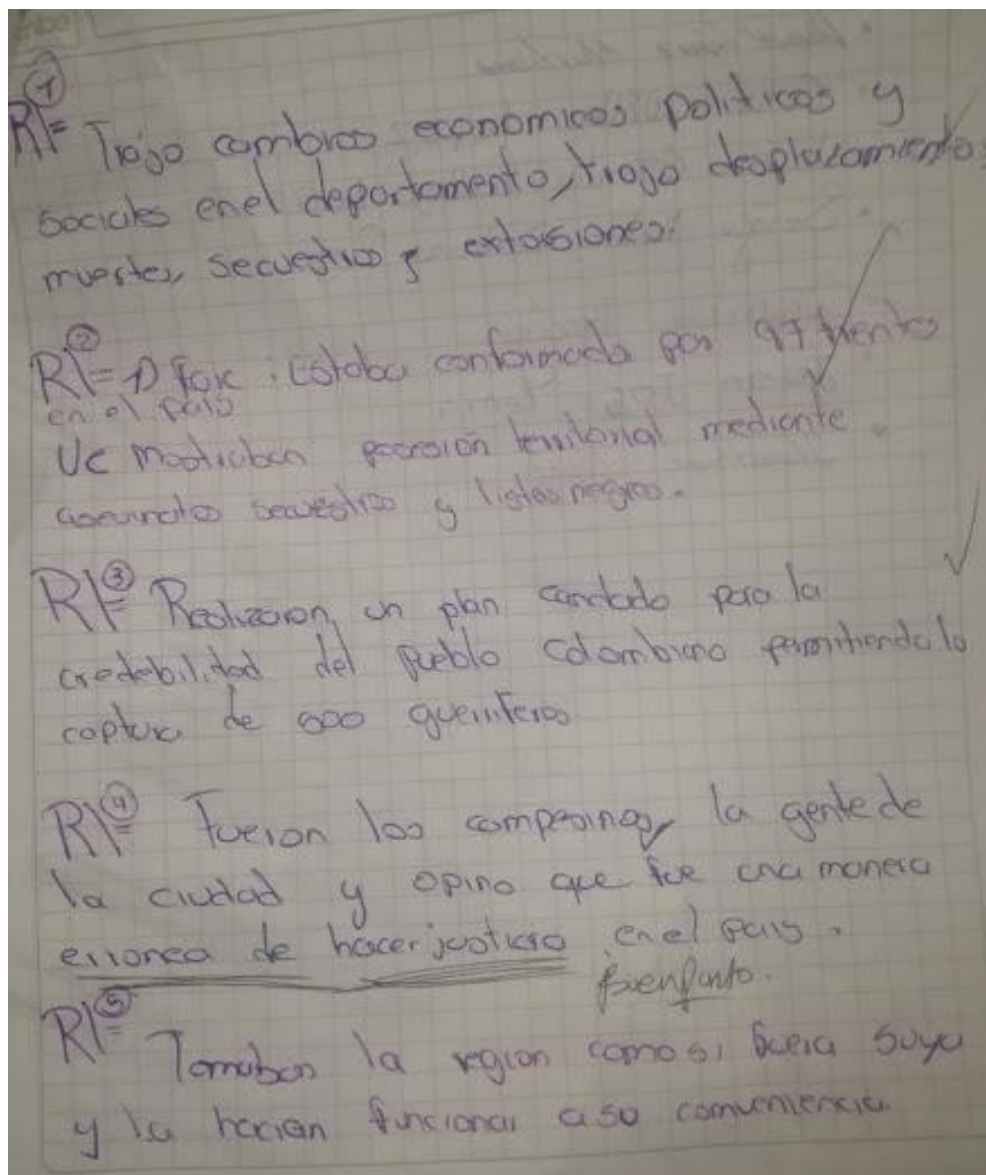 ①
R/= Trajo cambios economicos politicos y
sociales en el departamento, trajo desplazamiento
muertes, secuestros y extorsiones.
②
R/= D Farc. Estaba conformada por 97 frentes
en el pais
mediante
secuestros y listas negras.
③
R/= Realizaron un plan para la
credebilidad del pueblo colombiano permitiendo la
captura de 600 guerrilleros
④
R/= Fueron los campesinos, la gente de
la ciudad y opino que fue una manera
erronea de hacer justicia en el pais.
Buen punto.
⑤
R/= Tomaban la region como si fuera suya
y la hacian funcionar a su conveniencia.